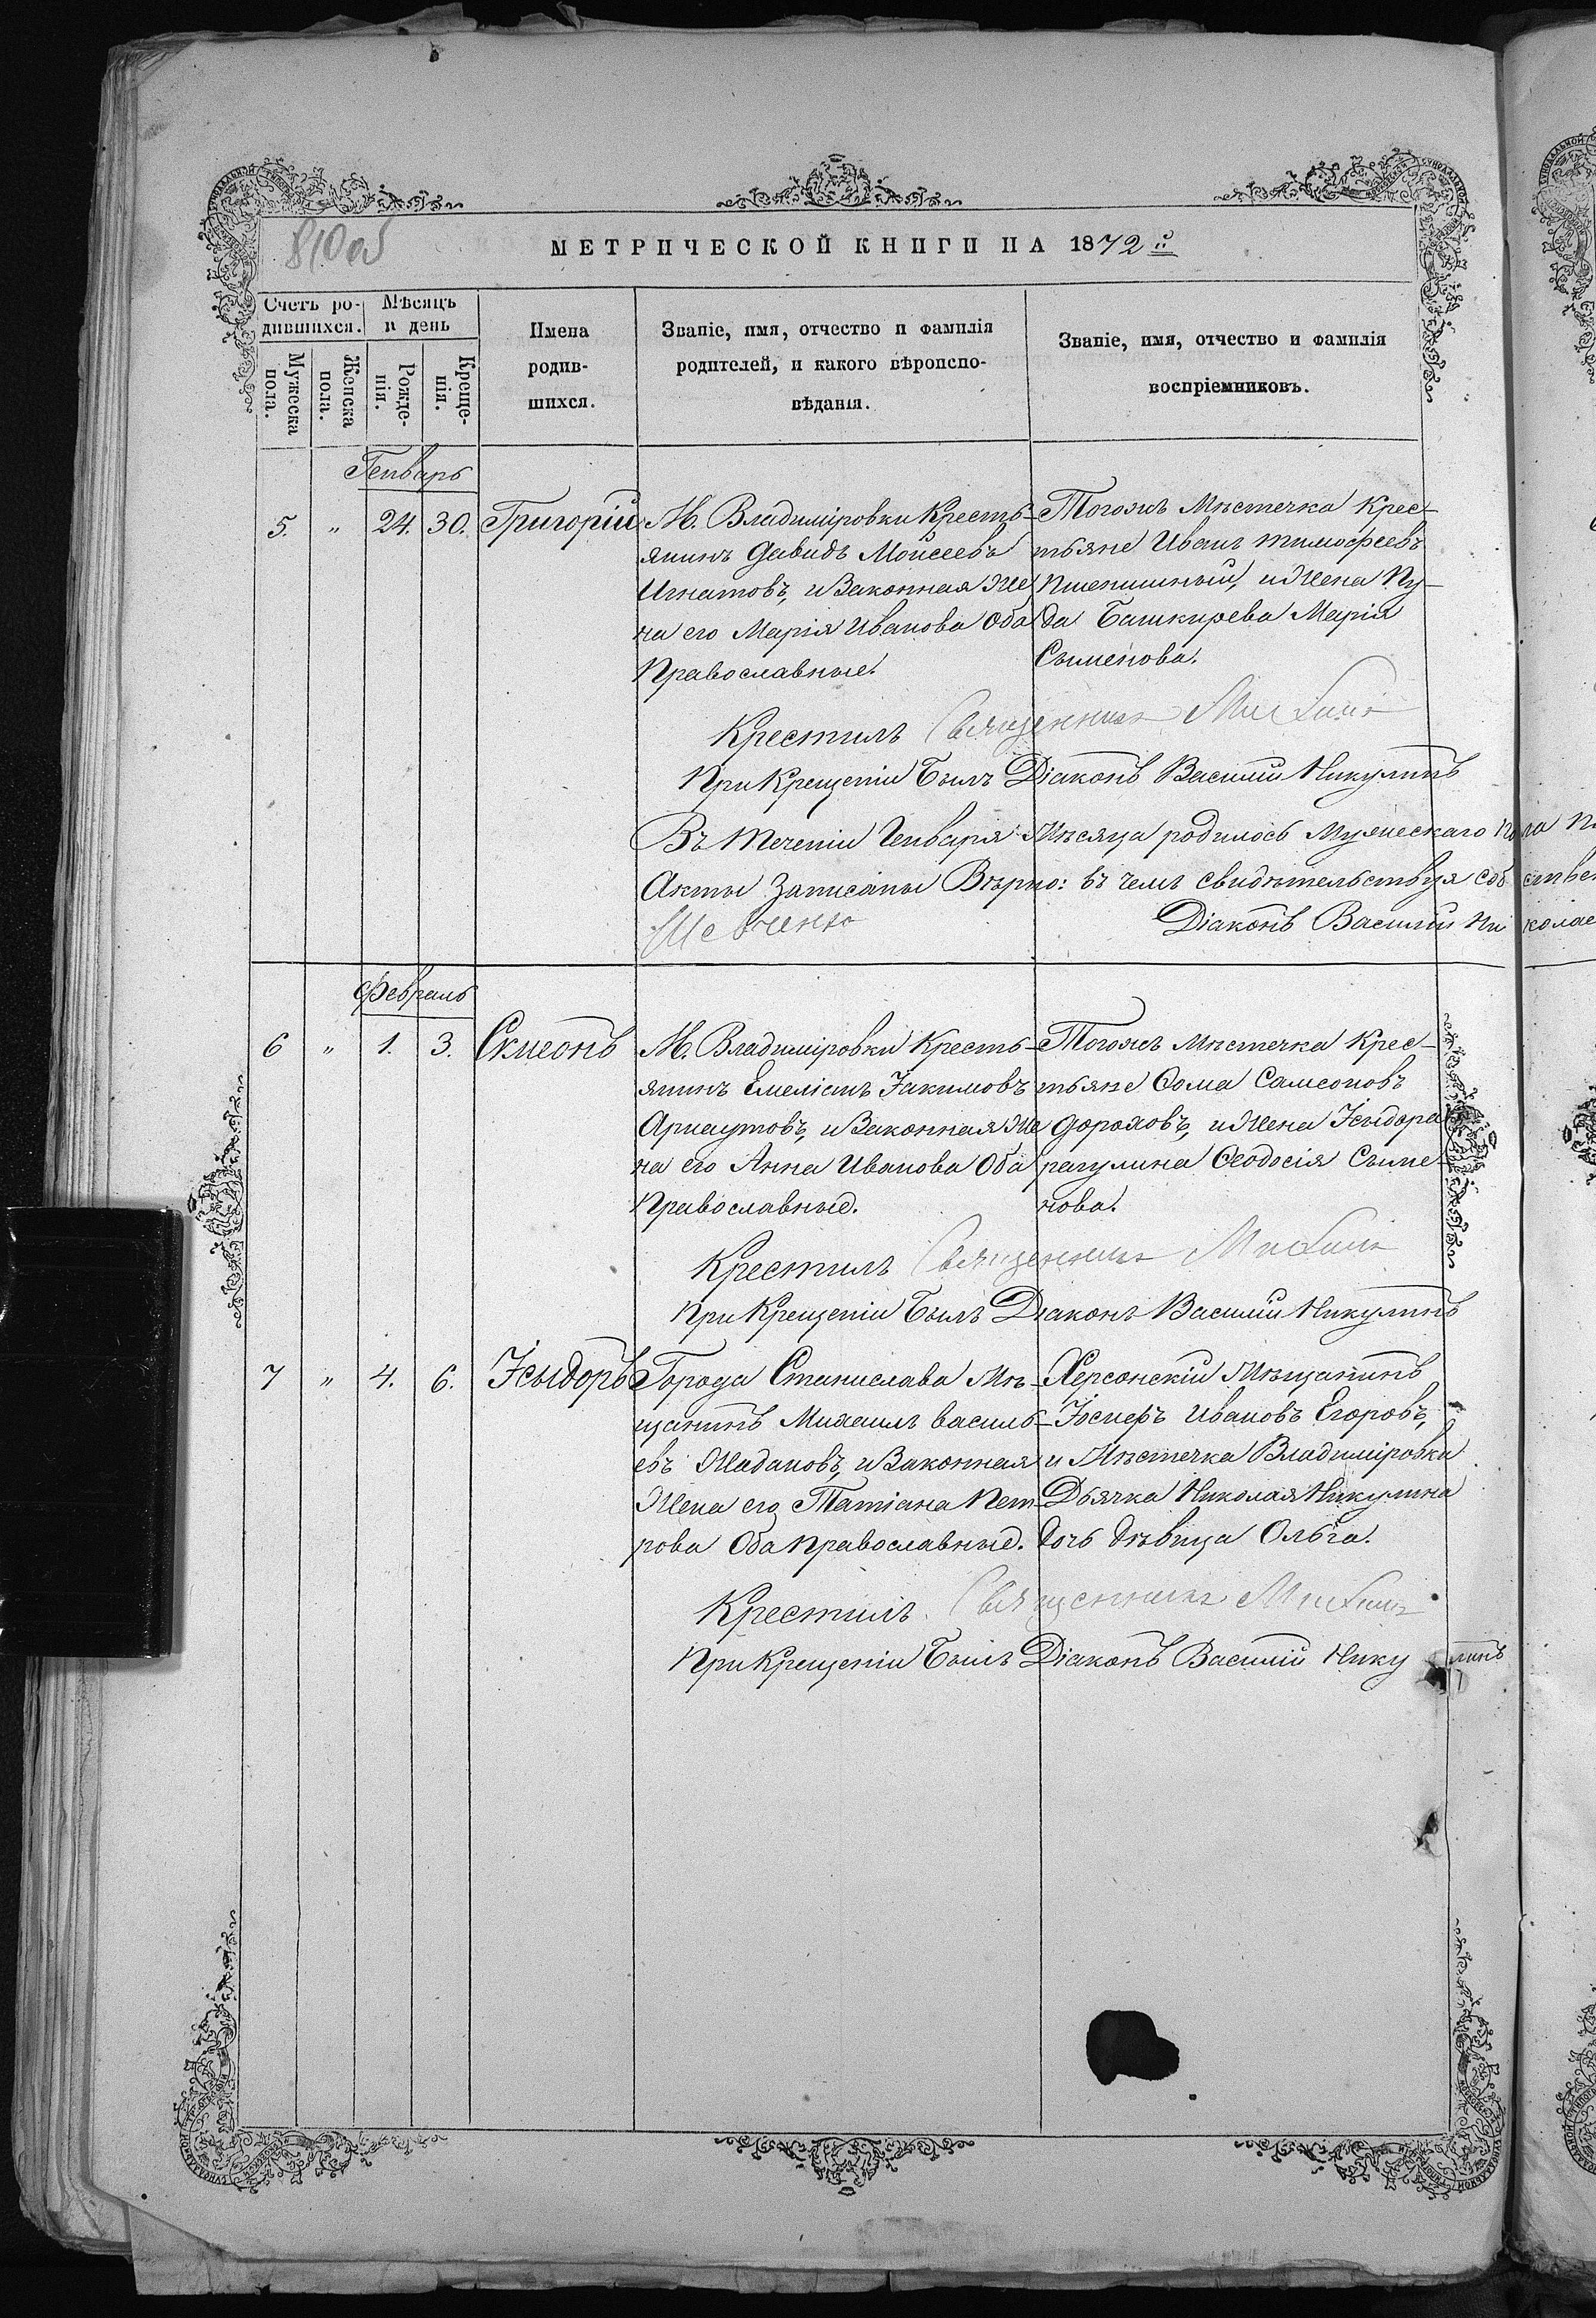 810об
МЕТРИЧЕСКОЙ КНИГИ НА 1872й
Счетъ ро-
дившихся.
Мѣсяцъ
и день
Мужеска
пола.
Женска
пола.
Рожде-
нія.
Креще-
нія.
Имена
родив-
шихся.
Званіе, имя, отчество и фамилія
родителей, и какого вѣроиспо-
вѣданія.
Званіе, имя, отчество и фамилія
воспріемниковъ.
Генварь
5. „ 24. 30. Григорій
М. Владиміровки Кресть-
янинъ Давидъ Моисеевъ
Игнатовъ, и Законная Же
на его Марія Иванова Оба
Православные.
Тогожъ Мѣстечка Крес-
тьяне Иванъ Тимофеевъ
Пшеничный, и Жена Пу-
да Башкирева Марія
Сѵменова.
Крестилъ Священникъ Михаилъ
При Крещеніи Былъ Діаконъ Василій Никулинъ
Въ Теченіи Генваря Мѣсяца родилось Мужескаго пола
Акты Записаны Вѣрно: въ чемъ свидѣтельствуя собствен
Шевченко
Діаконъ Василій Николае
Февраль
6 „ 1. 3. Сѵмеонъ
М. Владиміровки Кресть-
янинъ Емеліанъ Іакимовъ
Арнаутовъ, и Законная Же
на его Анна Иванова Оба
Православные.
Тогожъ Мѣстечка Крес-
тьяне Ѳома Самсоновъ
Дороховъ, и Жена Ісидора
рагулина Ѳеодосія Сѵме-
нова.
Крестилъ Священникъ Михаилъ
При Крещеніи Былъ Діаконъ Василій Никулинъ
7 „ 4. 6. Ісидоръ
Города Станислава Мѣ-
щанинъ Михаилъ Василь-
евъ Жадановъ, и Законная
Жена его Татіана Пет-
рова Оба Православные.
Херсонскій Мѣщанинъ
Іосифъ Ивановъ Егоровъ,
и Мѣстечка Владиміровки
Дьячка Николая Никулина
дочь дѣвица Ольга.
Крестилъ Священникъ Михаилъ
При Крещеніи Былъ Діаконъ Василій Никулинъ